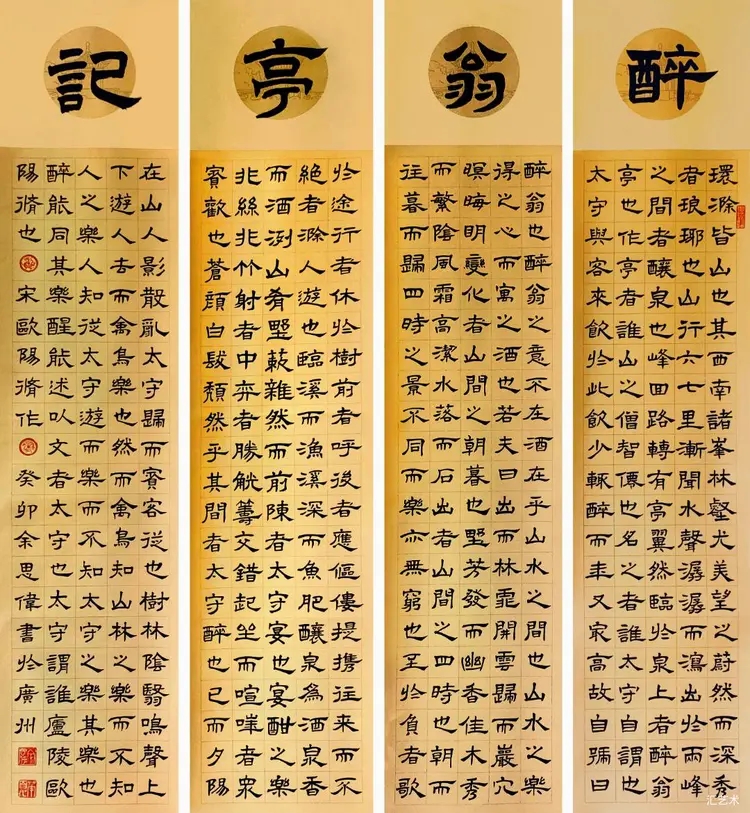 醉翁亭記
環滁皆山也其西南諸峯林壑尤美望之蔚然而深秀
者琅琊也山行六七里漸聞水聲潺潺而瀉出於兩峰
之間者釀泉也峰回路轉有亭翼然臨於泉上者醉翁
亭也作亭者誰山之僧智僊也名之者誰太守自謂也
太守與客來飲於此飲少輒醉而年又最高故自號曰
醉翁也醉翁之意不在酒在乎山水之間也山水之樂
得之心而寓之酒也若夫日出而林霏開雲歸而巖穴
暝晦明變化者山間之朝暮也野芳發而幽香佳木秀
而繁陰風霜高潔水落而石出者山間之四時也朝而
往暮而歸四時之景不同而樂亦無窮也至於負者歌
於途行者休於樹前者呼後者應傴僂提携往来而不
絕者滁人遊也臨溪而漁溪深而魚肥釀泉為酒泉香
而酒洌山肴野蔌雜然而前陳者太守宴也宴酣之樂
非絲非竹射者中弈者勝觥籌交錯起坐而喧嘩者衆
賓歡也蒼顏白髮頹然乎其間者太守醉也已而夕陽
在山人影散亂太守歸而賓客從也樹林陰翳鳴聲上
下遊人去而禽鳥樂也然而禽鳥知山林之樂而不知
人之樂人知從太守遊而樂而不知太守之樂其樂也
醉能同其樂醒能述以文者太守也太守謂誰廬陵歐
陽脩也 宋歐陽脩作 癸卯余思偉書於廣州
汇艺术